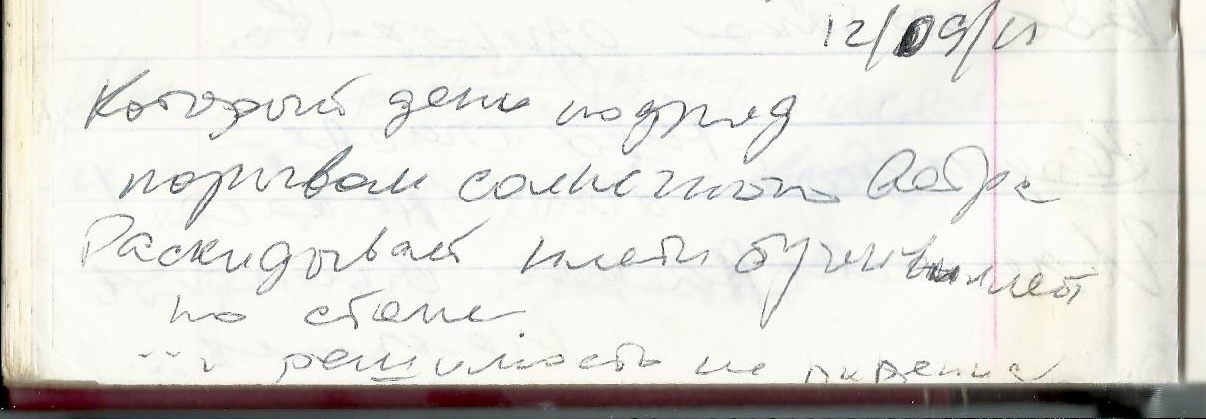 12/09/11
Который день подряд
порывом солнечного ветра
Раскидывает плети
по стене.
решимость не